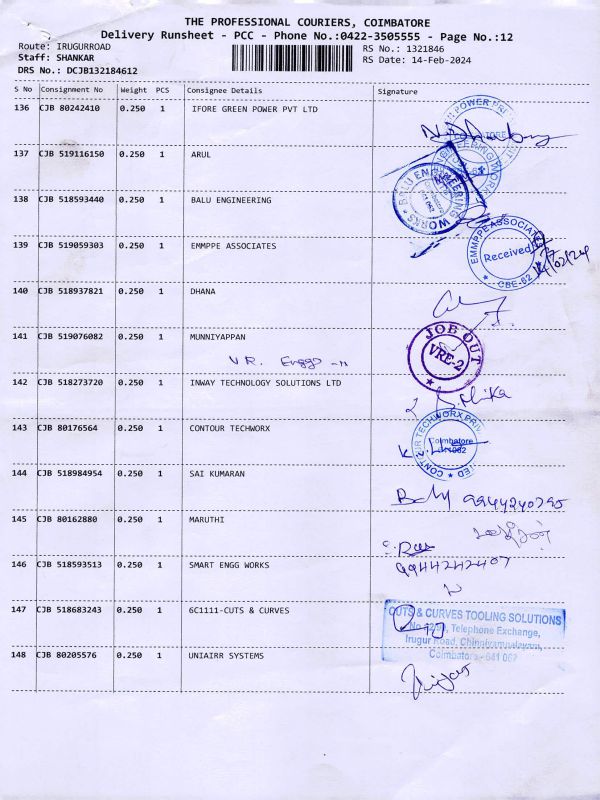 THE PROFESSIONAL COURIERS, COIMBATORE
Delivery Runsheet - PCC - Phone No.:0422-3505555 - Page No.:12
Route: IRUGURROAD RS No.: 1321846
Staff: SHANKAR RS Date: 14-Feb-2024
DRS No.: DCJB132184612
S No Consignment No Weight PCS Consignee Details Signature
136 CJB 80242410 0.250 1 IFORE GREEN POWER PVT LTD
137 CJB 519116150 0.250 1 ARUL
138 CJB 518593440 0.250 1 BALU ENGINEERING
BALU ENGINEERING WORKS
139 CJB 519059303 0.250 1 EMMPPE ASSOCIATES
EMMPPE ASSOCIATES
Received
CBE-62
14/02/24
140 CJB 518937821 0.250 1 DHANA
141 CJB 519076082 0.250 1 MUNNIYAPPAN
V.R. Enggs
JOB OUT
VRE-2
142 CJB 518273720 0.250 1 INWAY TECHNOLOGY SOLUTIONS LTD
143 CJB 80176564 0.250 1 CONTOUR TECHWORX
Coimbatore
144 CJB 518984954 0.250 1 SAI KUMARAN
9944240795
145 CJB 80162880 0.250 1 MARUTHI
146 CJB 518593513 0.250 1 SMART ENGG WORKS
9944242407
147 CJB 518683243 0.250 1 6C1111-CUTS & CURVES
CUTS & CURVES TOOLING SOLUTIONS
Telephone Exchange,
Irugur Road, Chinniyampalayam,
Coimbatore - 641 062
148 CJB 80205576 0.250 1 UNIAIRR SYSTEMS